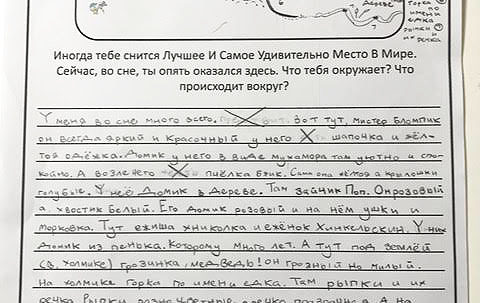 Дереве
горка
по
имени
едка
рыпки
и их
речка
Иногда тебе снится Лучшее И Самое Удивительно Место В Мире.
Сейчас, во сне, ты опять оказался здесь. Что тебя окружает? Что
происходит вокруг?
У меня во сне много всего. Вот тут, мистер Бломпик
он всегда яркий и красочный у него шапочка и жёл-
тая одёжка. Домик у него в виде мухамора там уютно и спо-
койно. А возле него пчёлка Бжик. Сама она жёлтая а крылошки
голубые. У неё Домик в дереве. Там зайчик Поп. Он розовый
а хвостик белый. Его домик розовый и на нём ушки и
морковка. Тут ежиша хниколка и ежёнок Хинкельский. У них
домик из пенька. Которому много лет. А тут под землёй
(в холмике) грозинка, медведь! он грозный но милый.
На холмике горка по имени едка. Там рыпки и их
речка. Рыпки разноцветные, а речка прозрачная. А на